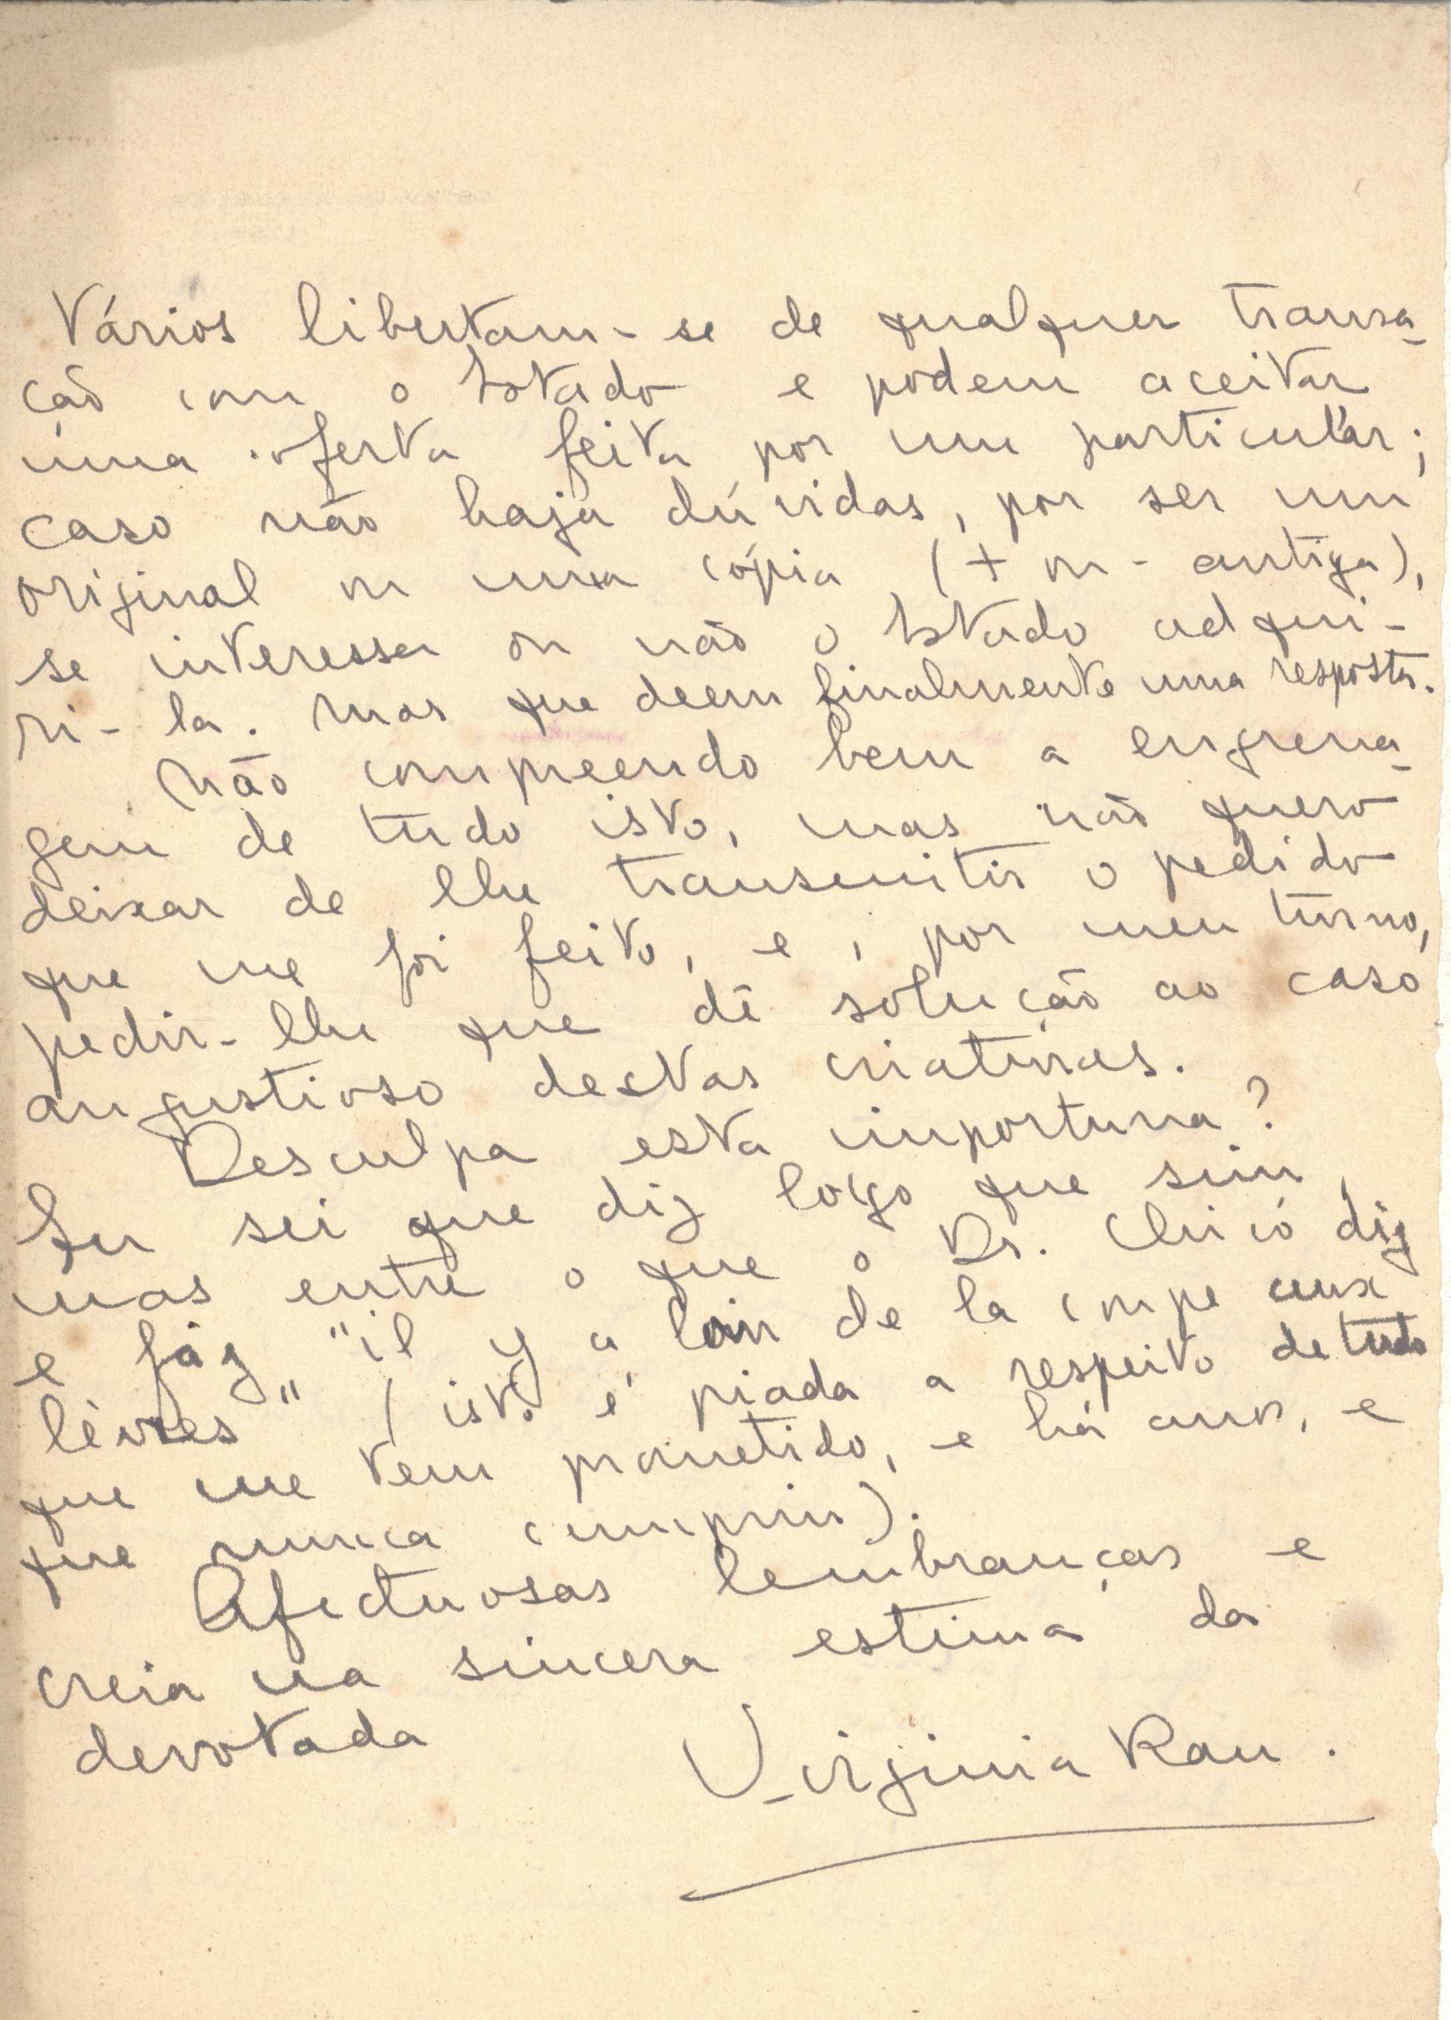 Vários libertam-se de qualquer transa-
ção com o Estado e podem aceitar
uma oferta feita por um particular;
caso não haja dúvidas, por ser um
original ou uma cópia (+ ou - antiga),
se interessa ou não o Estado adqui-
ri-la. Mas que deem finalmente uma resposta.
Não compreendo bem a engrena-
gem de tudo isto, mas não quero
deixar de lhe transmitir o pedido
que me foi feito, e, por meu turno,
pedir-lhe que dê solução ao caso
angustioso destas criaturas.
Desculpa esta importuna?
Eu sei que diz logo que sim,
mas entre o que o Dr. Chicó diz
e faz "il y a loin de la coupe aux
lèvres" (isto é piada a respeito de tudo
que me tem prometido, e há anos, e
que nunca cumpriu).
Afectuosas lembranças e
creia na sincera estima da
devotada
Virginia Rau.